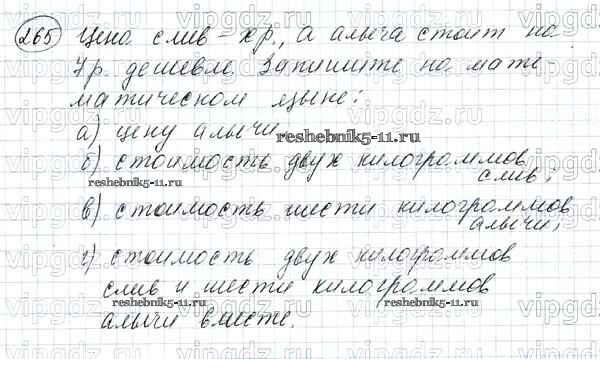 265 Цена слив - x р., а алыча стоит на
7 р. дешевле. Запишите на мате-
матическом языке:
а) цену алычи
reshebnik5-11.ru
б) стоимость двух килограммов
слив;
reshebnik5-11.ru
в) стоимость шести килограммов
алычи;
г) стоимость двух килограммов
слив и шести килограммов
reshebnik5-11.ru
алычи вместе.